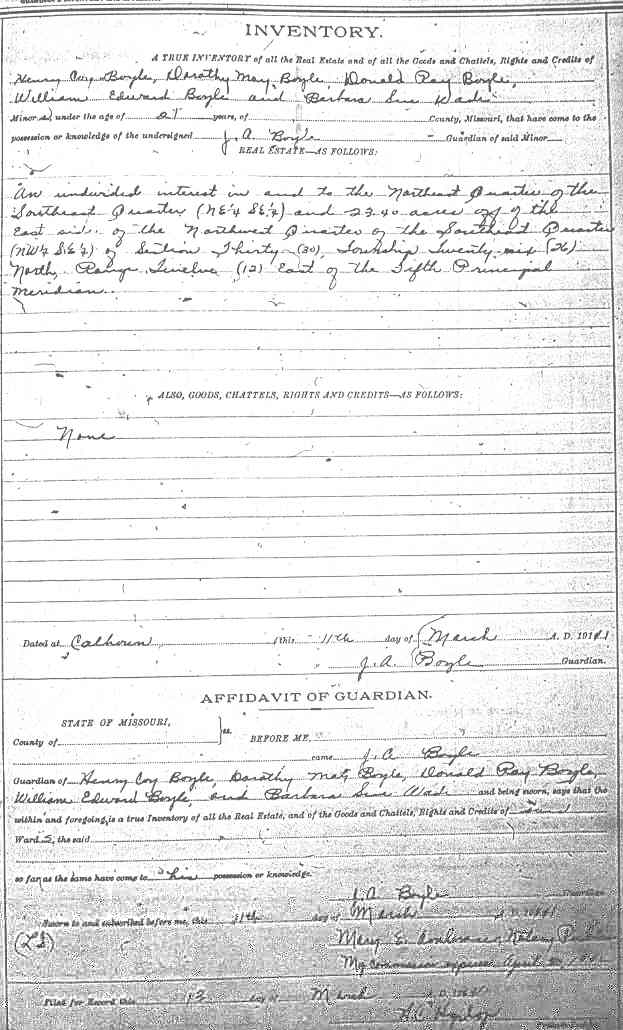 INVENTORY.
A TRUE INVENTORY of all the Real Estate and of all the Goods and Chattels, Rights and Credits of
Henry Coy Boyle, Dorothy May Boyle, Donald Ray Boyle,
William Edward Boyle and Barbara Sue Wade
Minors, under the age of 21 years, of County, Missouri, that have come to the
possession or knowledge of the undersigned J. A. Boyle Guardian of said Minor
REAL ESTATE—AS FOLLOWS:
An undivided interest in and to the Northeast Quarter of the
Southeast Quarter (NE¼ SE¼) and 23.40 acres off of the
East side of the Northwest Quarter of the Southeast Quarter
(NW¼ SE¼) of Section Thirty (30), Township Twenty six (26)
North, Range Twelve (12) East of the Fifth Principal
Meridian.
ALSO, GOODS, CHATTELS, RIGHTS AND CREDITS—AS FOLLOWS:
None
Dated at Calhoun, this 11th day of March A. D. 1941
J. A. Boyle Guardian.
AFFIDAVIT OF GUARDIAN.
STATE OF MISSOURI,
County of ss. BEFORE ME,
came J. A Boyle
Guardian of Henry Coy Boyle, Dorothy May Boyle, Donald Ray Boyle,
William Edward Boyle, and Barbara Sue Wade and being sworn, says that the
within and foregoing is a true Inventory of all the Real Estate, and of the Goods and Chattels, Rights and Credits of
Wards, the said
so far as the same have come to his possession or knowledge.
J. A. Boyle Guardian
Sworn to and subscribed before me, this 11th day of March A. D. 1941
(LS) Mary E. Notary
My commission expires April
Filed for Record this 13 day of March A. D. 1941